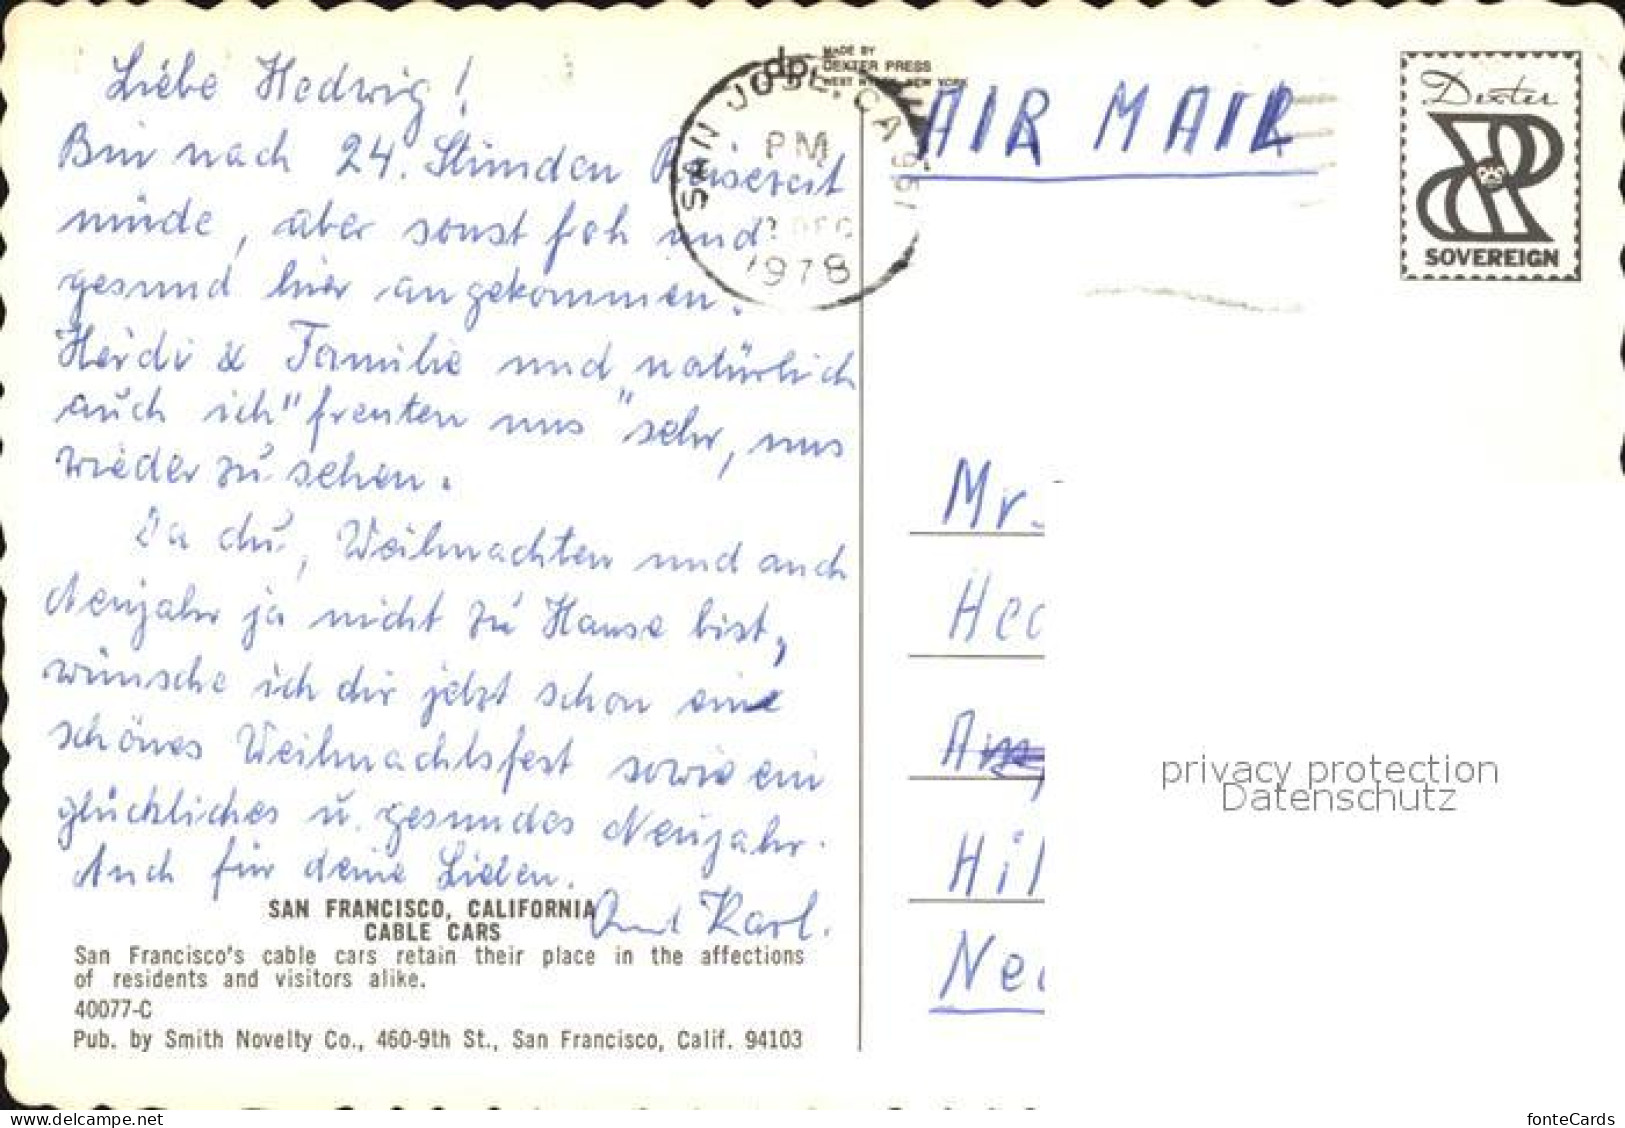 Liebe Hedwig!
Bin nach 24. Stunden Reisezeit
müde, aber sonst froh und
gesund hier angekommen.
Heidi & Familie und natürlich
auch ich "freuten uns" sehr, uns
wieder zu sehen.
Da du, Weihnachten und auch
Neujahr ja nicht zu Hause bist,
wünsche ich dir jetzt schon ein
schönes Weihnachtsfest sowie ein
glückliches u. gesundes Neujahr.
Auch für deine Lieben.
Karl.
SAN FRANCISCO, CALIFORNIA
CABLE CARS
San Francisco's cable cars retain their place in the affections
of residents and visitors alike.
40077-C
Pub. by Smith Novelty Co., 460-9th St., San Francisco, Calif. 94103
dp
MADE BY
DEXTER PRESS
WEST NYACK, NEW YORK
SAN JOSE, CA 951
PM
DEC
1978
AIR MAIL
Dexter
SOVEREIGN
Mr.
Hed
Hil
Neu
privacy protection
Datenschutz
fonteCards